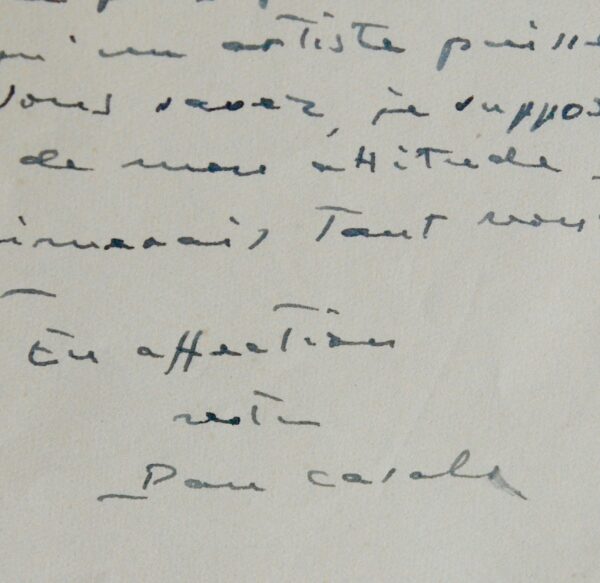 qu'un artiste puisse
Vous savez, je suppos
de mon attitude
aimerais tant vous
En affection
votre
Pau Casals